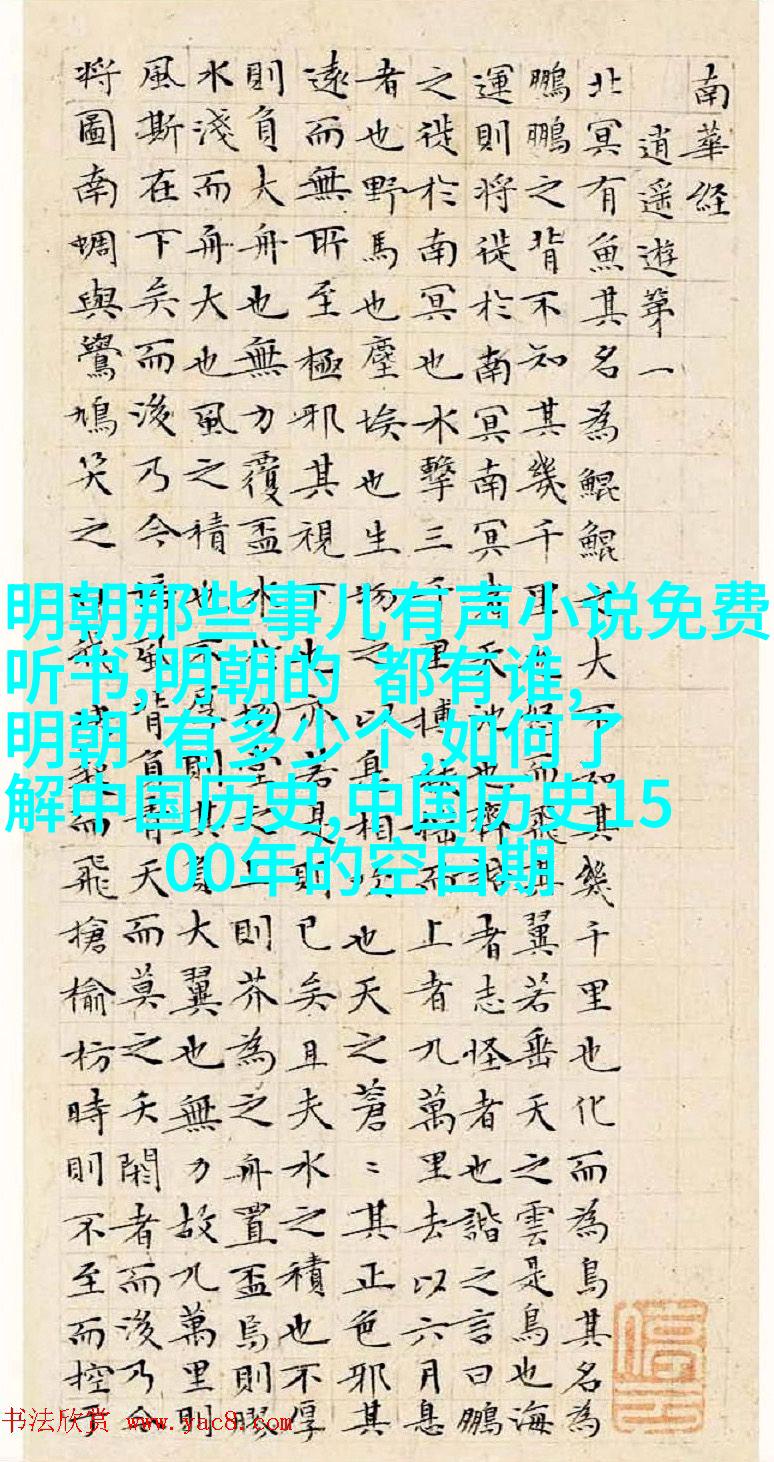 南華経
逍遥遊第一
北冥有魚其名為鯤鯤大不知其幾千里也化而為鳥其名為
鵬鵬之背不知其幾千里而飛其翼若垂天之雲是鳥也海
運則将徙於南冥南冥者天池也齊諧者志怪者也諧之言曰鵬
之徙於南冥也水擊三千里搏扶而上者九萬里去以六月息
者也野馬也塵埃也生物之以息相吹也天之蒼〻其正色邪其
遠而無所至極邪其視下也亦若是則已矣且夫水之積也不厚
則負大舟也無力覆盃水於堂之上則芥為之舟置盃焉則膠
水淺而舟大也風之積也不厚則其負大翼也無力故九萬里則
風斯在下矣而後乃今培風背負青天而莫之夭閼者而後乃今
将圖南蜩與鷽鳩笑之而飛搶榆枋時則不至而控於
明朝那些事儿有声小说免费
听书,明朝的 都有谁,
明朝 有多少个,如何了
解中国历史,中国历史15
00年的空白期
书法欣赏 www.yac8.com